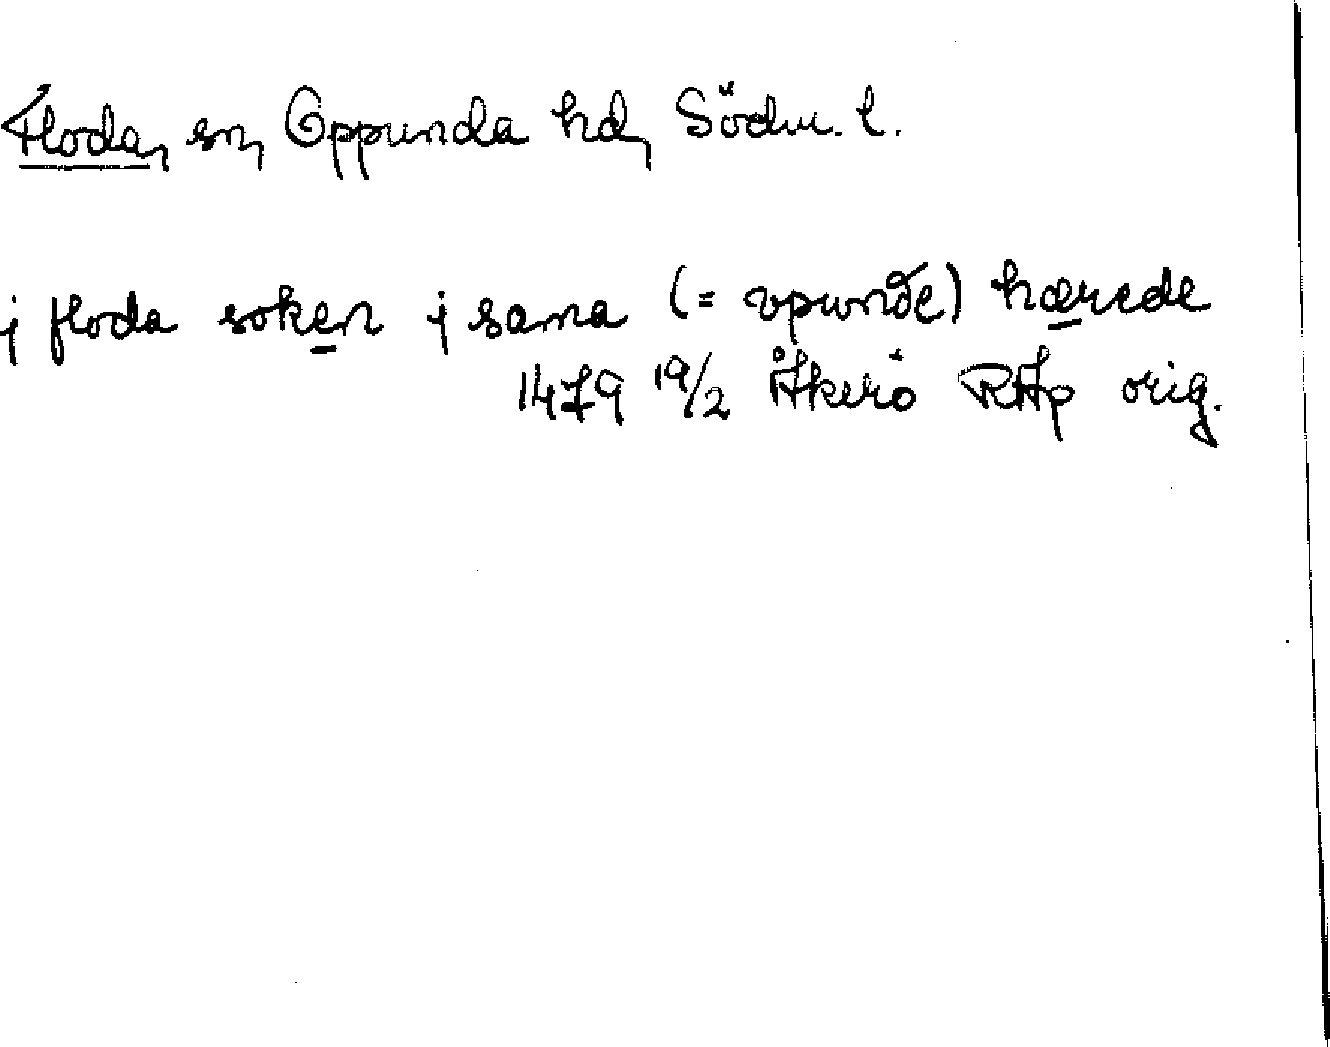 Floda, sn, Oppunda hd, Södm. l.
j floda soken j sama (= vpunde) hærede
1479 19/2 Åkerö RAp orig.